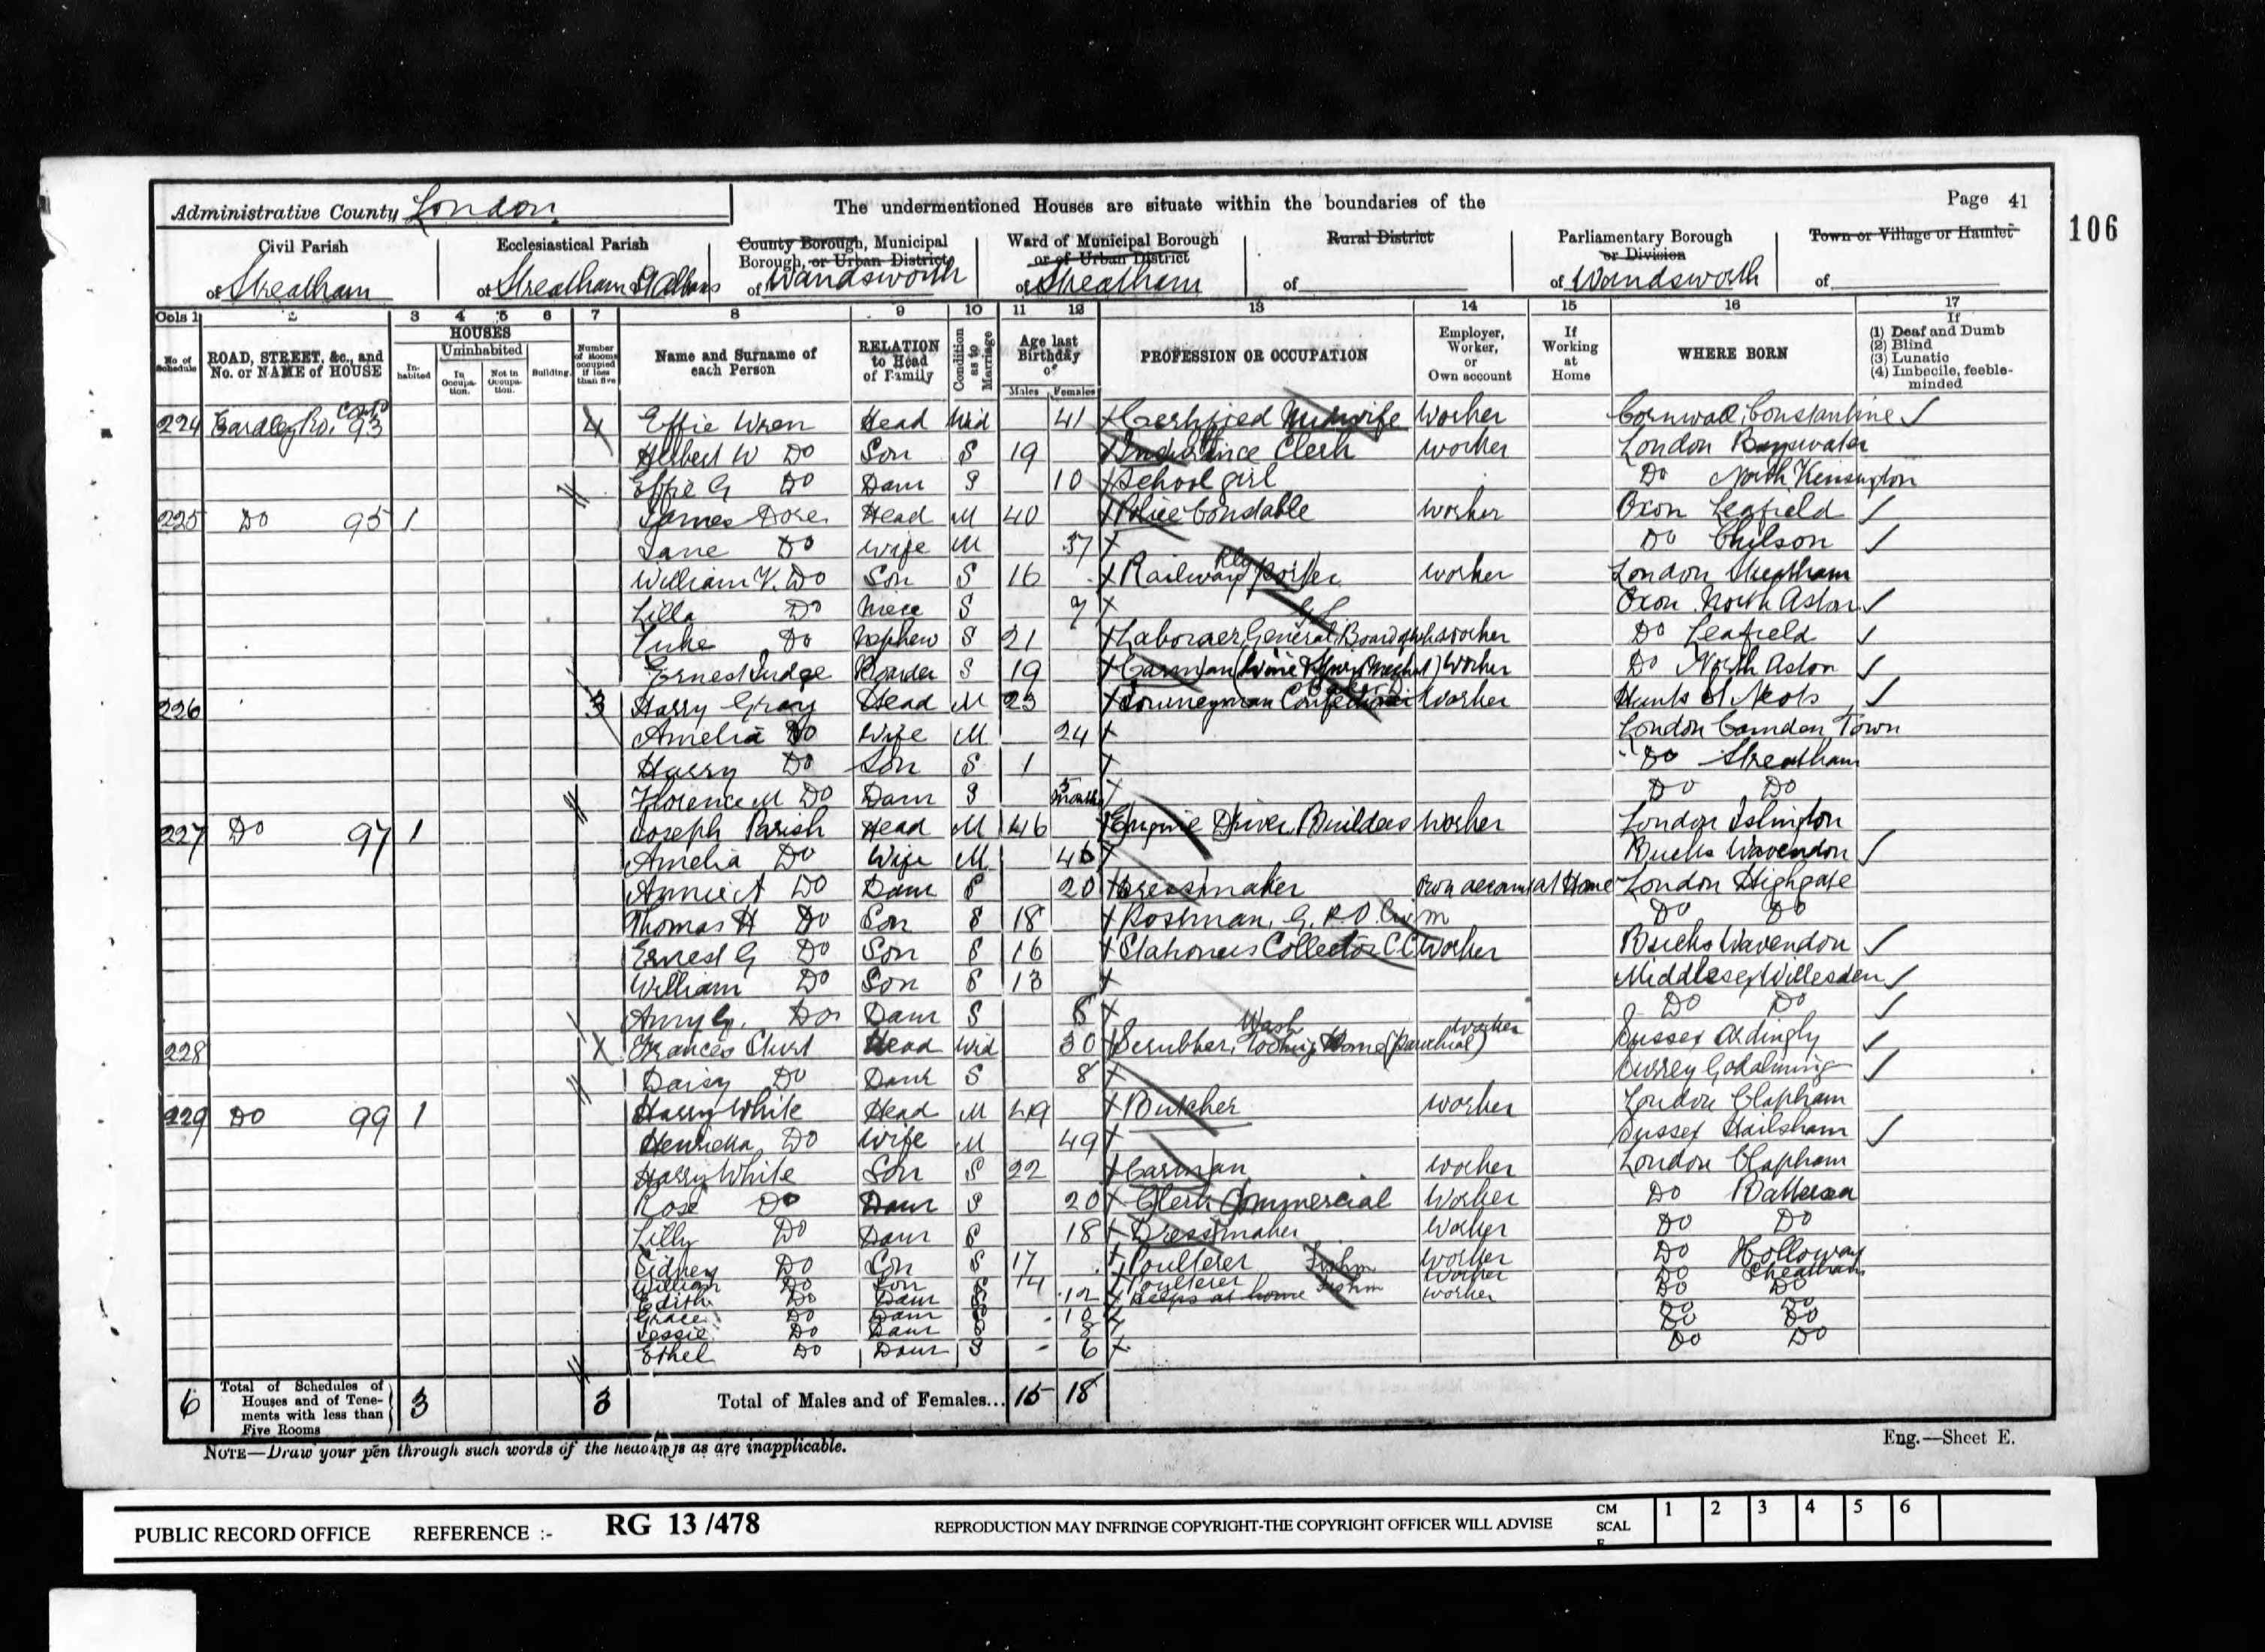 Page 41
106
Administrative County London
The undermentioned Houses are situate within the boundaries of the
Civil Parish of Streatham
Ecclesiastical Parish of Streatham St Albans
County Borough, Municipal Borough, or Urban District of Wandsworth
Ward of Municipal Borough or of Urban District of Streatham
Rural District of
Parliamentary Borough or Division of Wandsworth
Town or Village or Hamlet of
Cols 1 2 3 4 5 6 7 8 9 10 11 12 13 14 15 16 17
No of Schedule
ROAD, STREET, &c., and No. or NAME of HOUSE
HOUSES
Inhabited
Uninhabited
In Occupation.
Not in Occupation.
Building.
Number of Rooms occupied if less than five
Name and Surname of each Person
RELATION to Head of Family
Condition as to Marriage
Age last Birthday of
Males Females
PROFESSION OR OCCUPATION
Employer, Worker, or Own account
If Working at Home
WHERE BORN
If (1) Deaf and Dumb (2) Blind (3) Lunatic (4) Imbecile, feeble-minded
224 Eardley Rd contd 93 4 Effie Wren Head Wid 41 Certified Midwife Worker Cornwall, Constantine
Herbert W Do Son S 19 Insurance Clerk Worker London Bayswater
Effie G Do Daur S 10 School girl Do North Kensington
225 Do 95 1 James Dore Head M 40 Police Constable Worker Oxon Leafield
Jane Do Wife M 37 Do Chilson
William V. Do Son S 16 Railway Porter Rly Worker London Streatham
Lilla Do Niece S 7 Oxon North Aston
Luke Do Nephew S 21 Laborer, General Board of Wks Worker Do Leafield
Ernest Judge Boarder S 19 Carman (Wine & Spirit Mercht) Worker Do North Aston
226 3 Harry Gray Head M 23 Journeyman Confectioner Baker Worker Hunts St Neots
Amelia Do Wife M 24 London Camden Town
Harry Do Son S 1 Do Streatham
Florence M Do Daur S 5 months Do Do
227 Do 97 1 Joseph Parish Head M 46 Engine Driver, Builders Worker London Islington
Amelia Do Wife M 46 Bucks Wavendon
Annie A Do Daur S 20 Dressmaker Own account at Home London Highgate
Thomas H Do Son S 18 Postman, G.P.O. Do Do
Ernest G Do Son S 16 Stationers Collector C.C. Worker Bucks Wavendon
William Do Son S 13 Middlesex Willesden
Amy G. Do Daur S 8 Do Do
228 Frances Hurst Head Wid 30 Scrubber, Wash Home (Parochial) Worker Sussex Ardingly
Daisy Do Daur S 8 Surrey Godalming
229 Do 99 1 Harry White Head M 49 Butcher Worker London Clapham
Henrietta Do Wife M 49 Sussex Hailsham
Harry White Son S 22 Carman Worker London Clapham
Rose Do Daur S 20 Clerk Commercial Worker Do Battersea
Lilly Do Daur S 18 Dressmaker Worker Do Do
Sidney Do Son S 17 Poulterer Fishm Worker Do Holloway
William Do Son S 14 Poulterer Fishm Worker Do Streatham
Edith Do Daur S 12 Helps at home Worker Do Do
Grace Do Daur S 10 Do Do
Jessie Do Daur S 8 Do Do
Ethel Do Daur S 6 Do Do
6 Total of Schedules of Houses and of Tenements with less than Five Rooms 3 3 Total of Males and of Females... 15 18
NOTE—Draw your pen through such words of the headings as are inapplicable.
Eng.—Sheet E.
PUBLIC RECORD OFFICE REFERENCE :- RG 13 /478 REPRODUCTION MAY INFRINGE COPYRIGHT-THE COPYRIGHT OFFICER WILL ADVISE CM SCALE 1 2 3 4 5 6